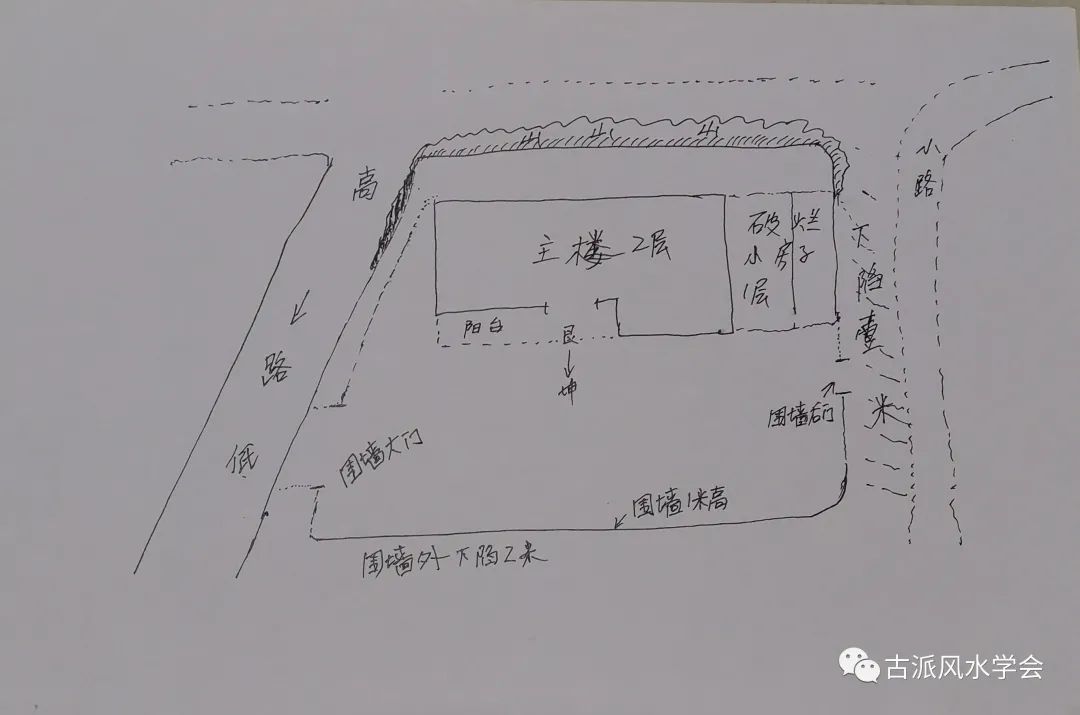 高
小路
主楼2层
破烂
小房子
1层
下陷壹米
阳台
艮
坤
路
低
围墙大门
围墙后门
围墙1米高
围墙外下陷2米
古派风水学会